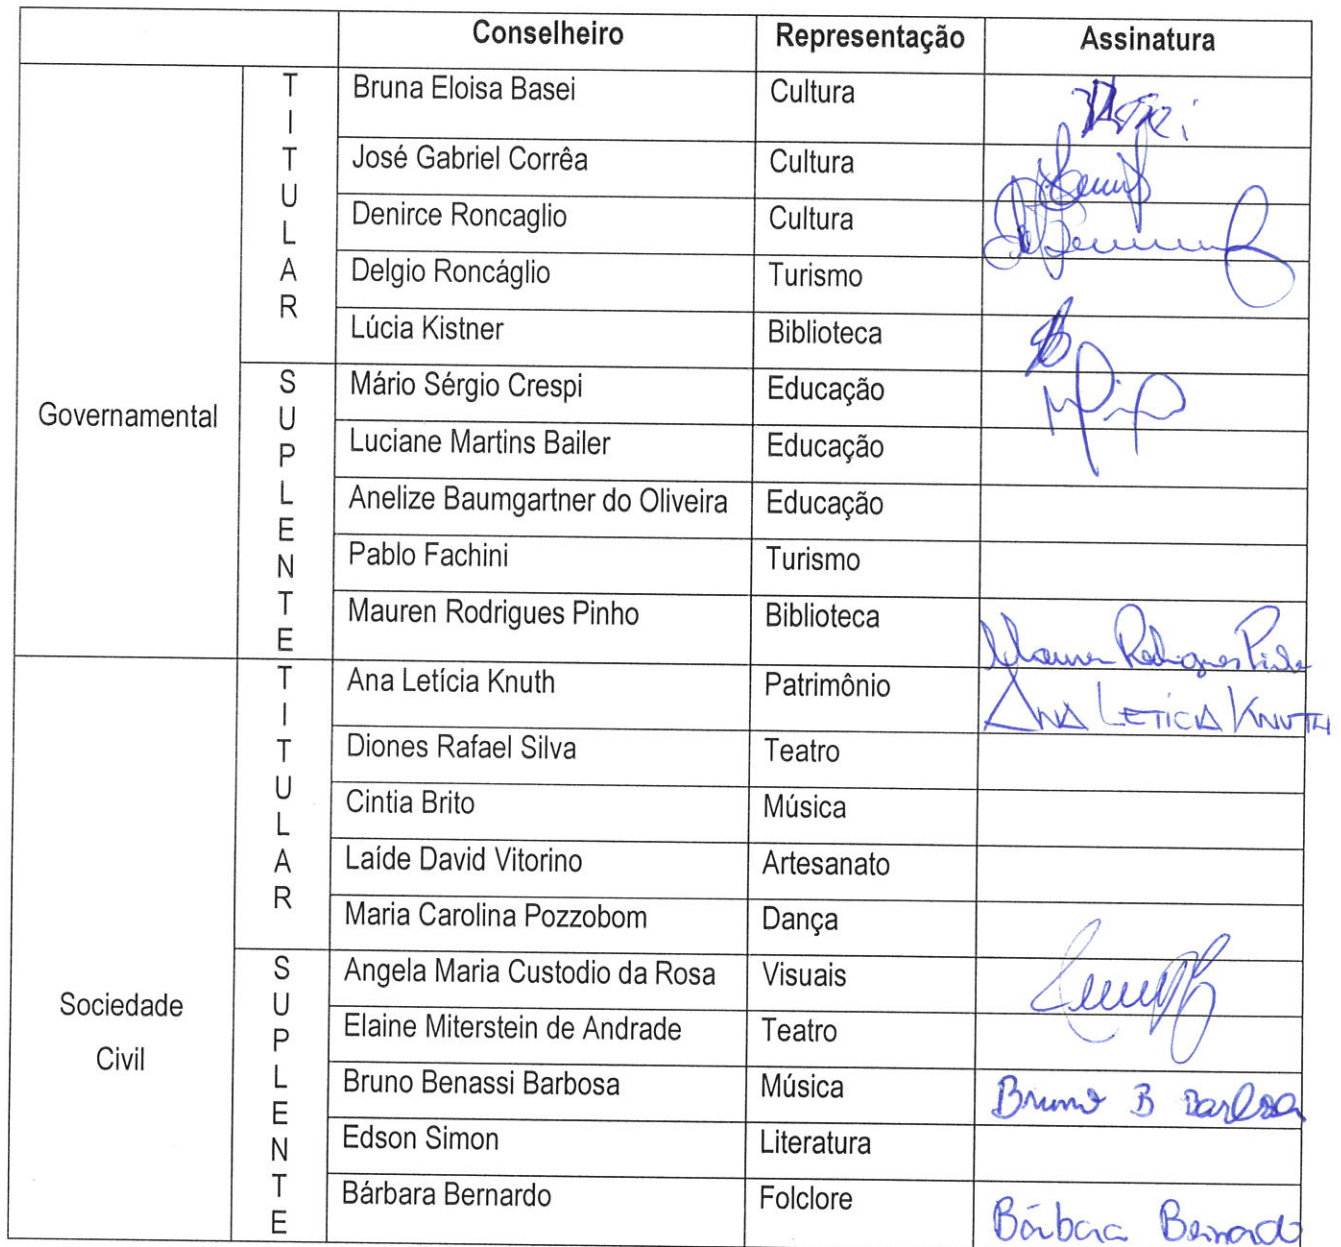 Conselheiro Representação Assinatura
Governamental
TITULAR
Bruna Eloisa Basei Cultura
José Gabriel Corrêa Cultura
Denirce Roncaglio Cultura
Delgio Roncáglio Turismo
Lúcia Kistner Biblioteca
SUPLENTE
Mário Sérgio Crespi Educação
Luciane Martins Bailer Educação
Anelize Baumgartner do Oliveira Educação
Pablo Fachini Turismo
Mauren Rodrigues Pinho Biblioteca Mauren Rodrigues Pinho
Sociedade
Civil
TITULAR
Ana Letícia Knuth Patrimônio ANA LETÍCIA KNUTH
Diones Rafael Silva Teatro
Cintia Brito Música
Laíde David Vitorino Artesanato
Maria Carolina Pozzobom Dança
SUPLENTE
Angela Maria Custodio da Rosa Visuais
Elaine Miterstein de Andrade Teatro
Bruno Benassi Barbosa Música Bruno B Barbosa
Edson Simon Literatura
Bárbara Bernardo Folclore Bárbara Bernardo